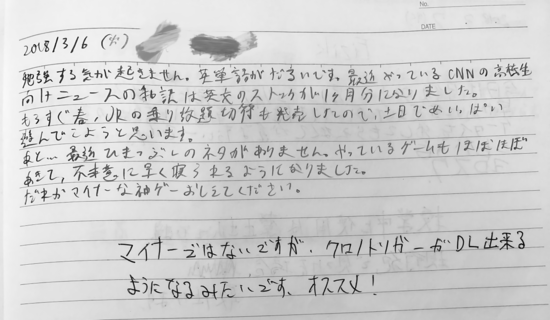 No.
DATE
2018/3/6 (火)
勉強する気が起きません。英単語がだるいです。最近やっているCNNの高校生
向けニュースの和訳は英文のストックが1ヶ月分になりました。
もうすぐ春、JRの乗り放題切符も発売したので、土日でめいっぱい
遊んでこようと思います。
あと… 最近ひまつぶしのネタがありません。やっているゲームもほぼほぼ
あきて、不本意に早く取れるようになりました。
だれかマイナーな神ゲーおしえてください。
マイナーではないですが、クロノトリガーがDL出来る
ようになるみたいです、オススメ!